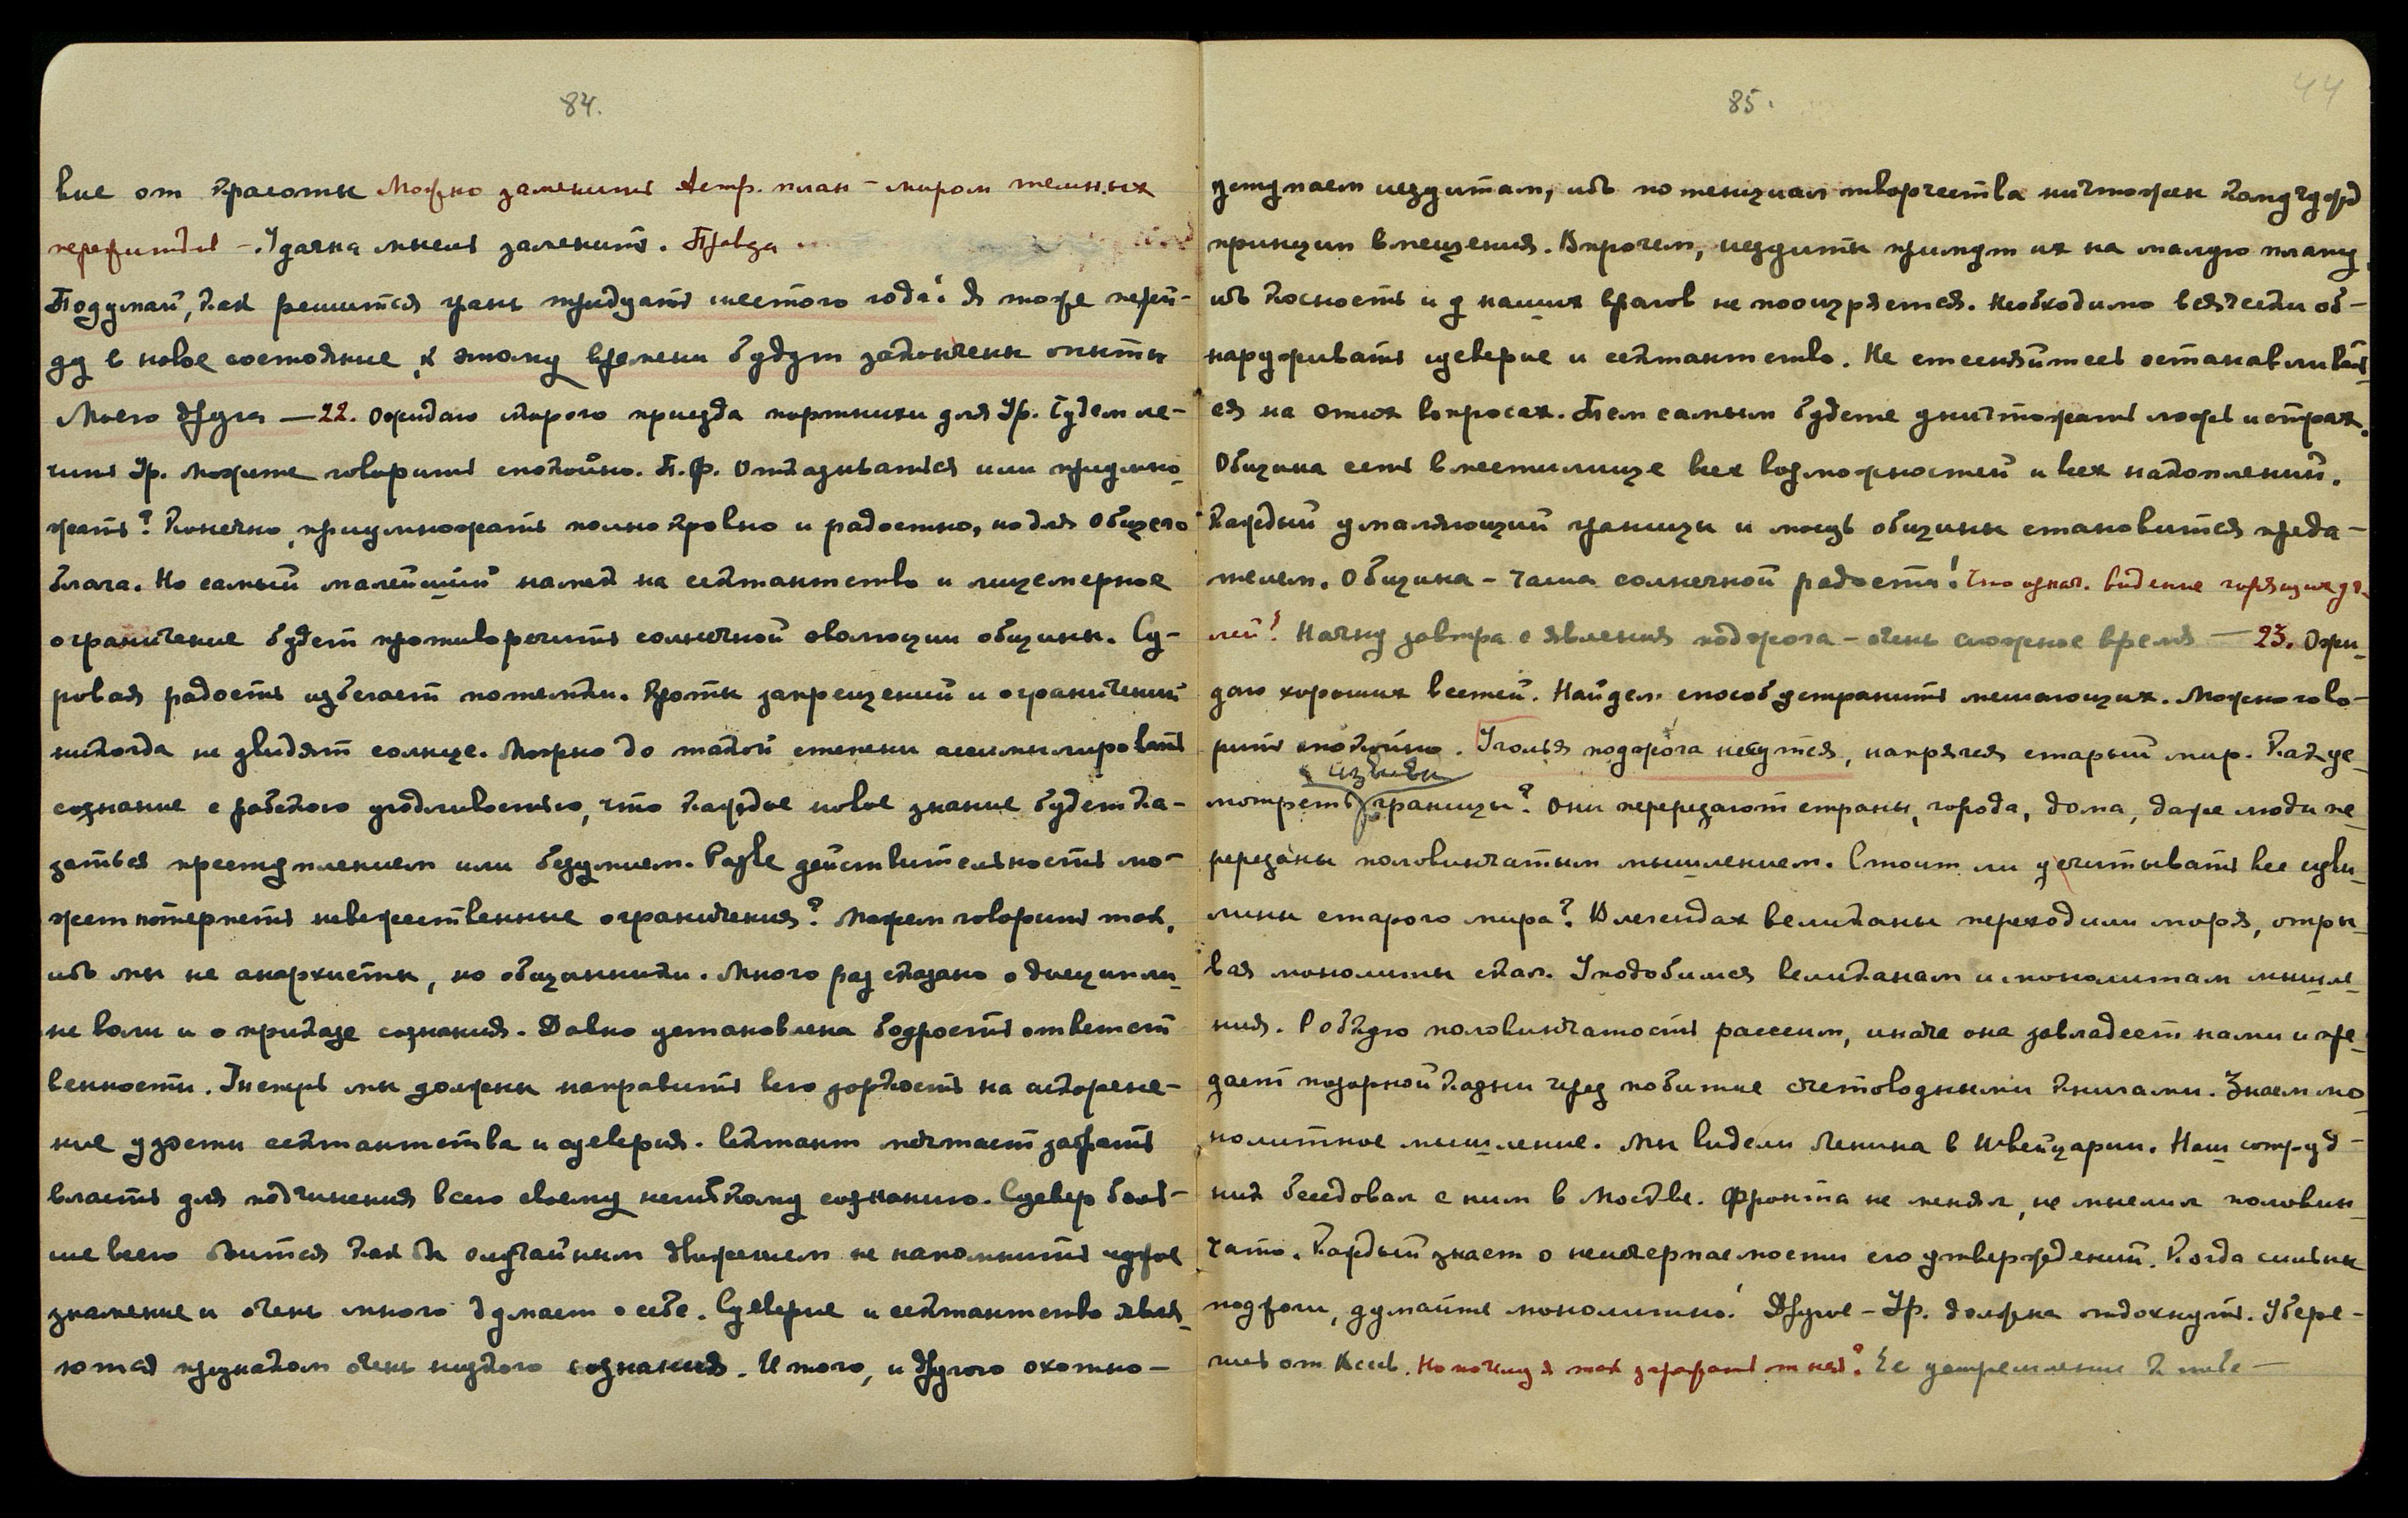 84.
вие от красоты Можно заменить Астр. план – миром темных
пережитков – Удачна мысль заменить. Правда
Подумай, как решится грань тридцать шестого года! Я тоже перей-
ду в новое состояние, к этому времени будут закончены опыты
Моего Друга — 22. Ожидаю скорого приезда портнихи для Ур. Будем ле-
чить Ур. Можете говорить спокойно. П.Ф. Отказываться или приумно-
жать? Конечно, приумножать полнокровно и радостно, но для Общего
блага. Но самый малейший намек на сектантство и лицемерное
ограничение будет противоречить солнечной эволюции общины. Су-
ровая радость избегает потемки. Кроты запрещений и ограничений
никогда не увидят солнце. Можно до такой степени ассимилировать
сознание с рабскою угодливостью, что каждое новое знание будет ка-
заться преступлением или безумием. Разве действительность мо-
жет потерпеть невежественные ограничения? Можем говорить так,
ибо мы не анархисты, но общинники. Много раз сказано о дисципли-
не воли и о приказе сознания. Давно установлена бодрость ответст
венности. Теперь мы должны направить всю зоркость на искорене-
ние узости сектантства и суеверия. Сектант мечтает забрать
власть для подчинения всего своему негибкому сознанию. Суевер боль-
ше всего боится как бы случайным движением не накликать чужое
знамение и очень много думает о себе. Суеверие и сектантство явля-
ются признаком очень низкого сознания. И того, и другого охотно –
85.
44
уступаем иезуитам, ибо потенциал творчества ничтожен кому чужд
принцип вмещения. Впрочем, иезуиты примут их на малую плату,
ибо косность и у наших врагов не поощряется. Необходимо всячески об-
наруживать суеверие и сектантство. Не стесняйтесь останавливать-
ся на этих вопросах. Тем самым будете уничтожать ложь и страх.
Община есть вместилище всех возможностей и всех накоплений.
Каждый умаляющий границы и мощь общины становится преда-
телем. Община – чаша солнечной радости! Что означ. видение горящих уг-
лей? Начну завтра о явлениях поджога – очень сложное время — 23. Ожи-
даю хороших вестей. Найдем способ устранить мешающих. Можно гово-
рить спокойно. Уголья поджога несутся, напрягся старый мир. Как ус-
мотреть границы? Они перерезают страны, города, дома, даже люди пе-
ререзаны половинчатым мышлением. Стоит ли учитывать все изви-
лины старого мира? В легендах великаны переходили моря, отры-
вая монолиты скал. Уподобимся великанам и монолитам мышле-
ния. Робкую половинчатость рассеим, иначе она завладеет нами и пре-
дает позорной казни чрез побитие счетоводными книгами. Знаем мо-
нолитное мышление. Мы видели Ленина в Швейцарии. Наш сотруд-
ник беседовал с ним в Москве. Фронта не менял, не мыслил половин-
чато. Каждый знает о неисчерпаемости его утверждений. Когда сильны
подголи, думайте монолитно! Другое – Ур. должна отдохнуть. Убере-
гись от Кеш. Но почему я так заражаюсь ею? Ее устремление к тебе —